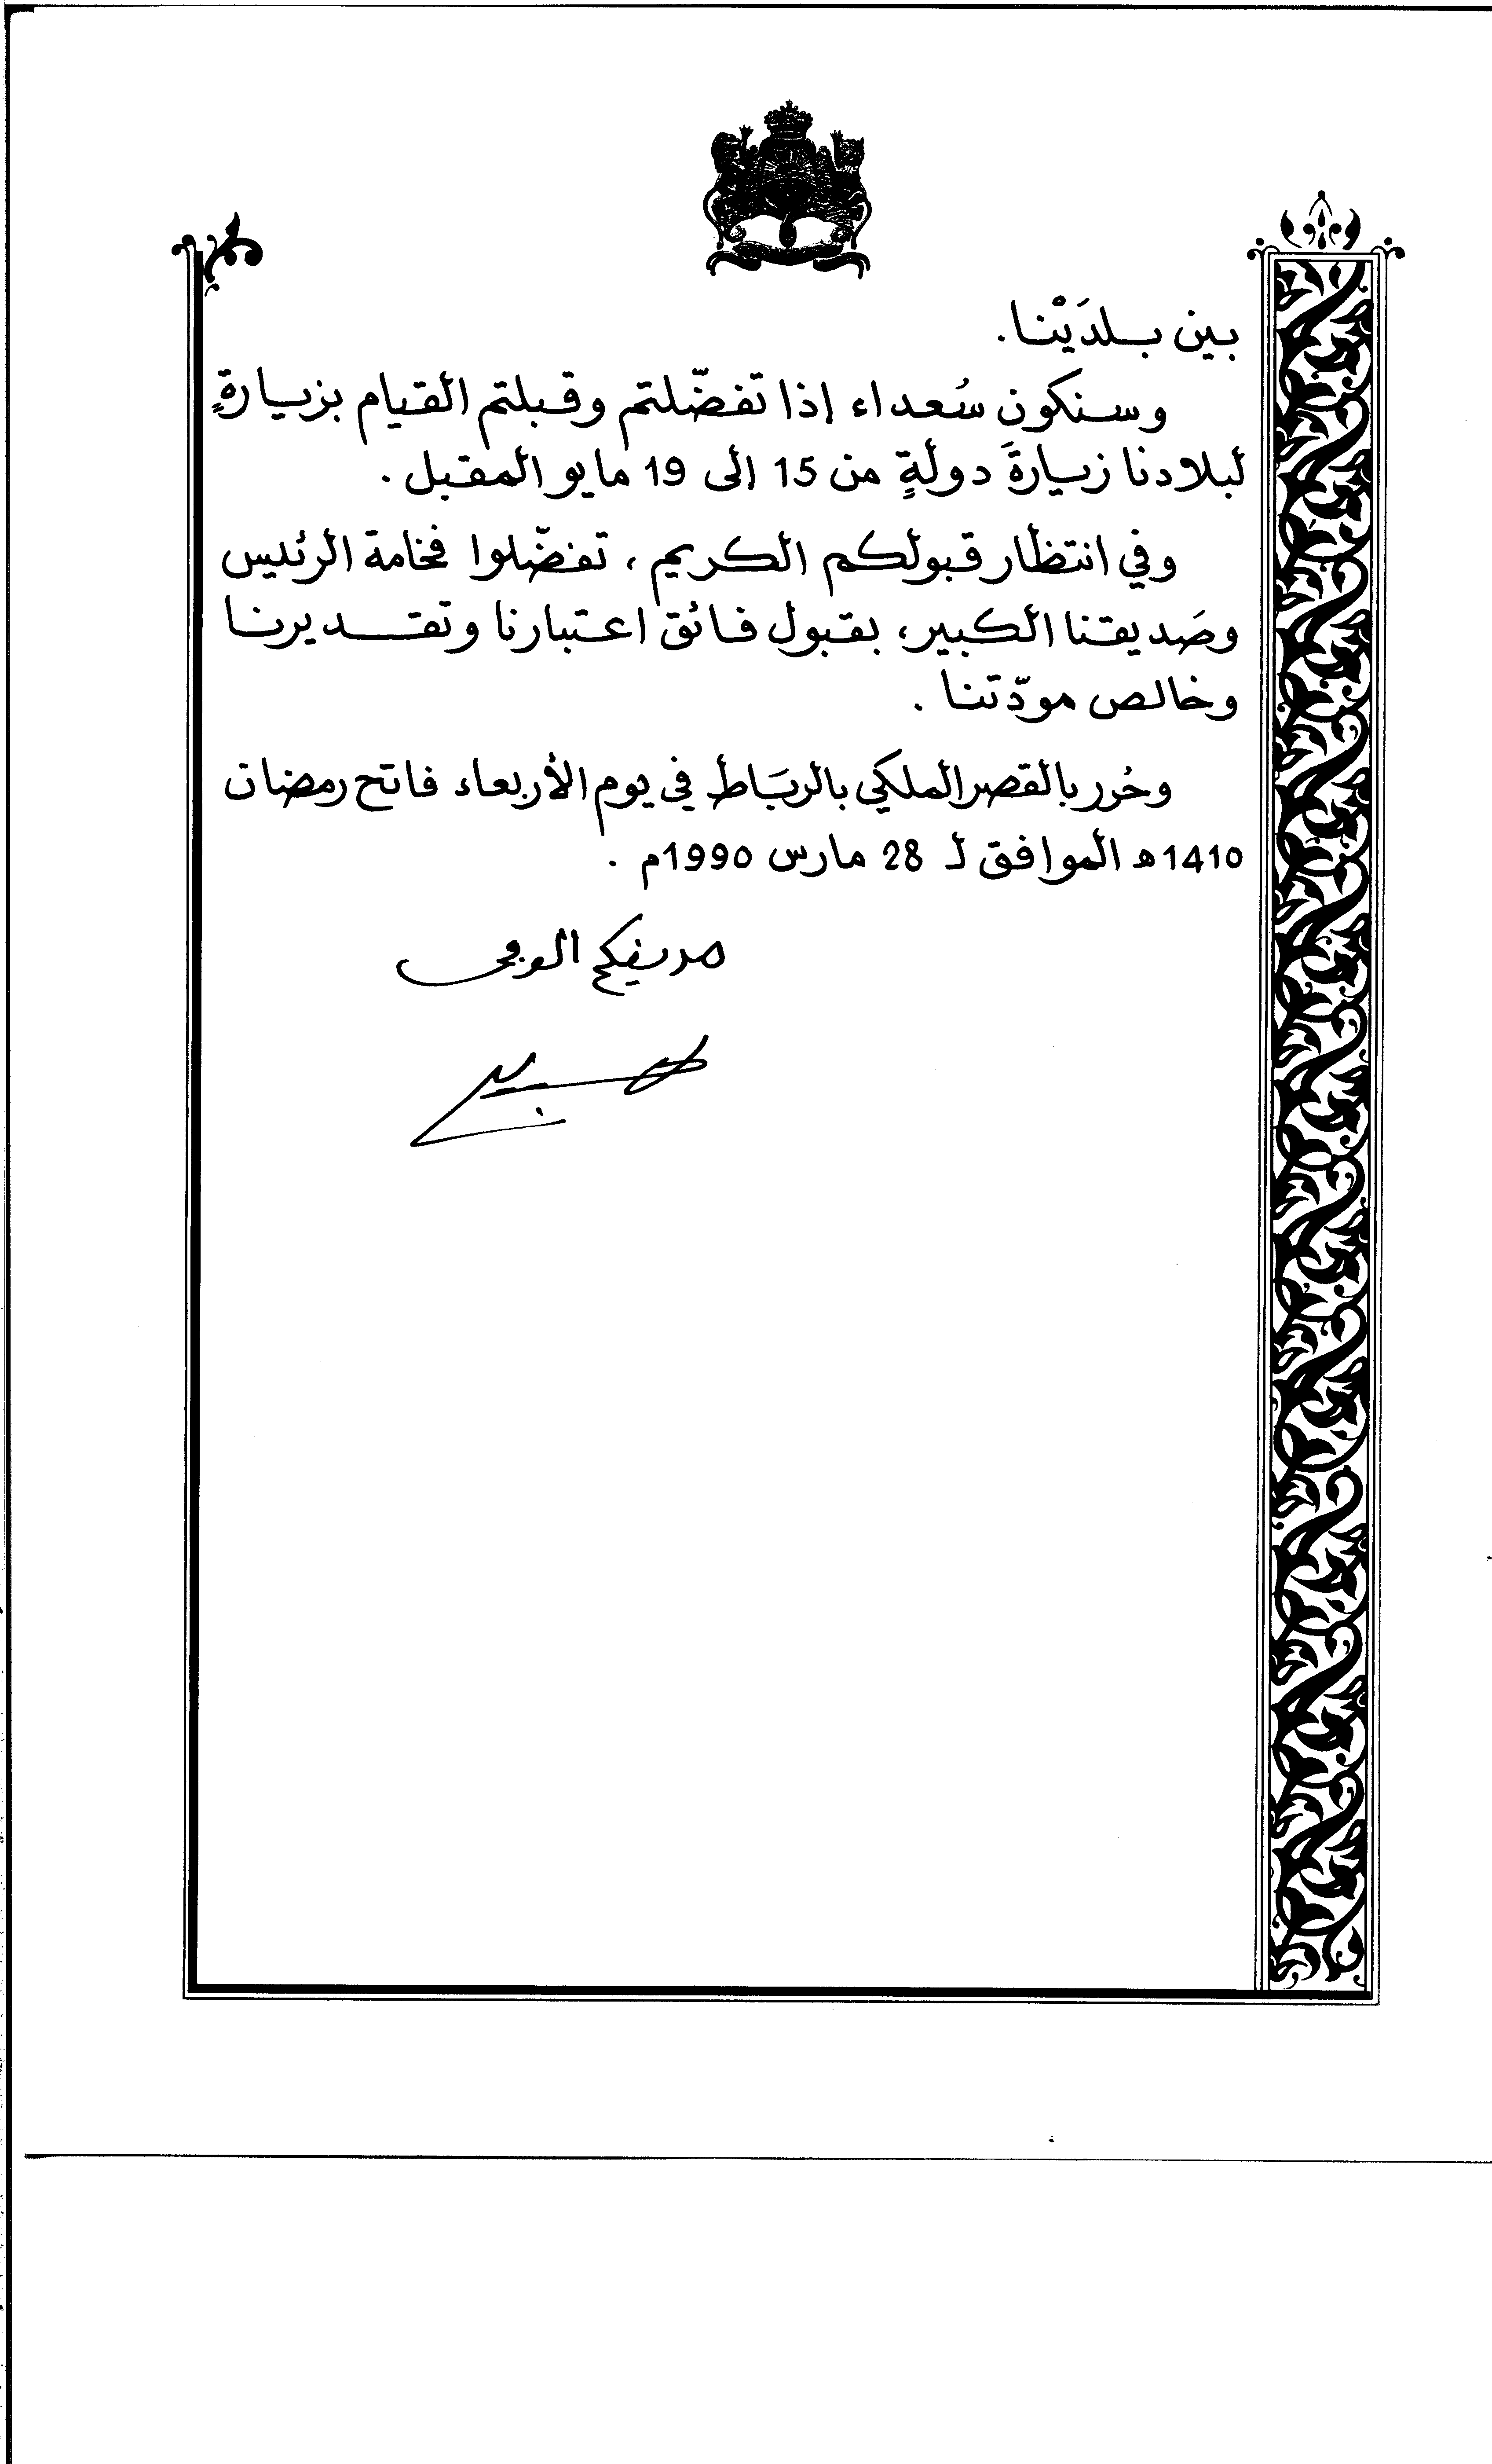 بين بلدَيْنا.
وسنكون سُعداء إذا تفضّلتم وقبلتم القيام بزيارةٍ
لبلادنا زيارةَ دولةٍ من 15 الى 19 مايو المقبل.
وفي انتظار قبولكم الكريم، تفضّلوا فخامة الرئيس
وصَديقنا الكبير، بقبول فائق اعتبارنا وتقديرنا
وخالص مودّتنا.
وحُرر بالقصر الملكي بالربَاط في يوم الأربعاء فاتح رمضان
1410ه الموافق لـ 28 مارس 1990م.
صديقكم الوفي